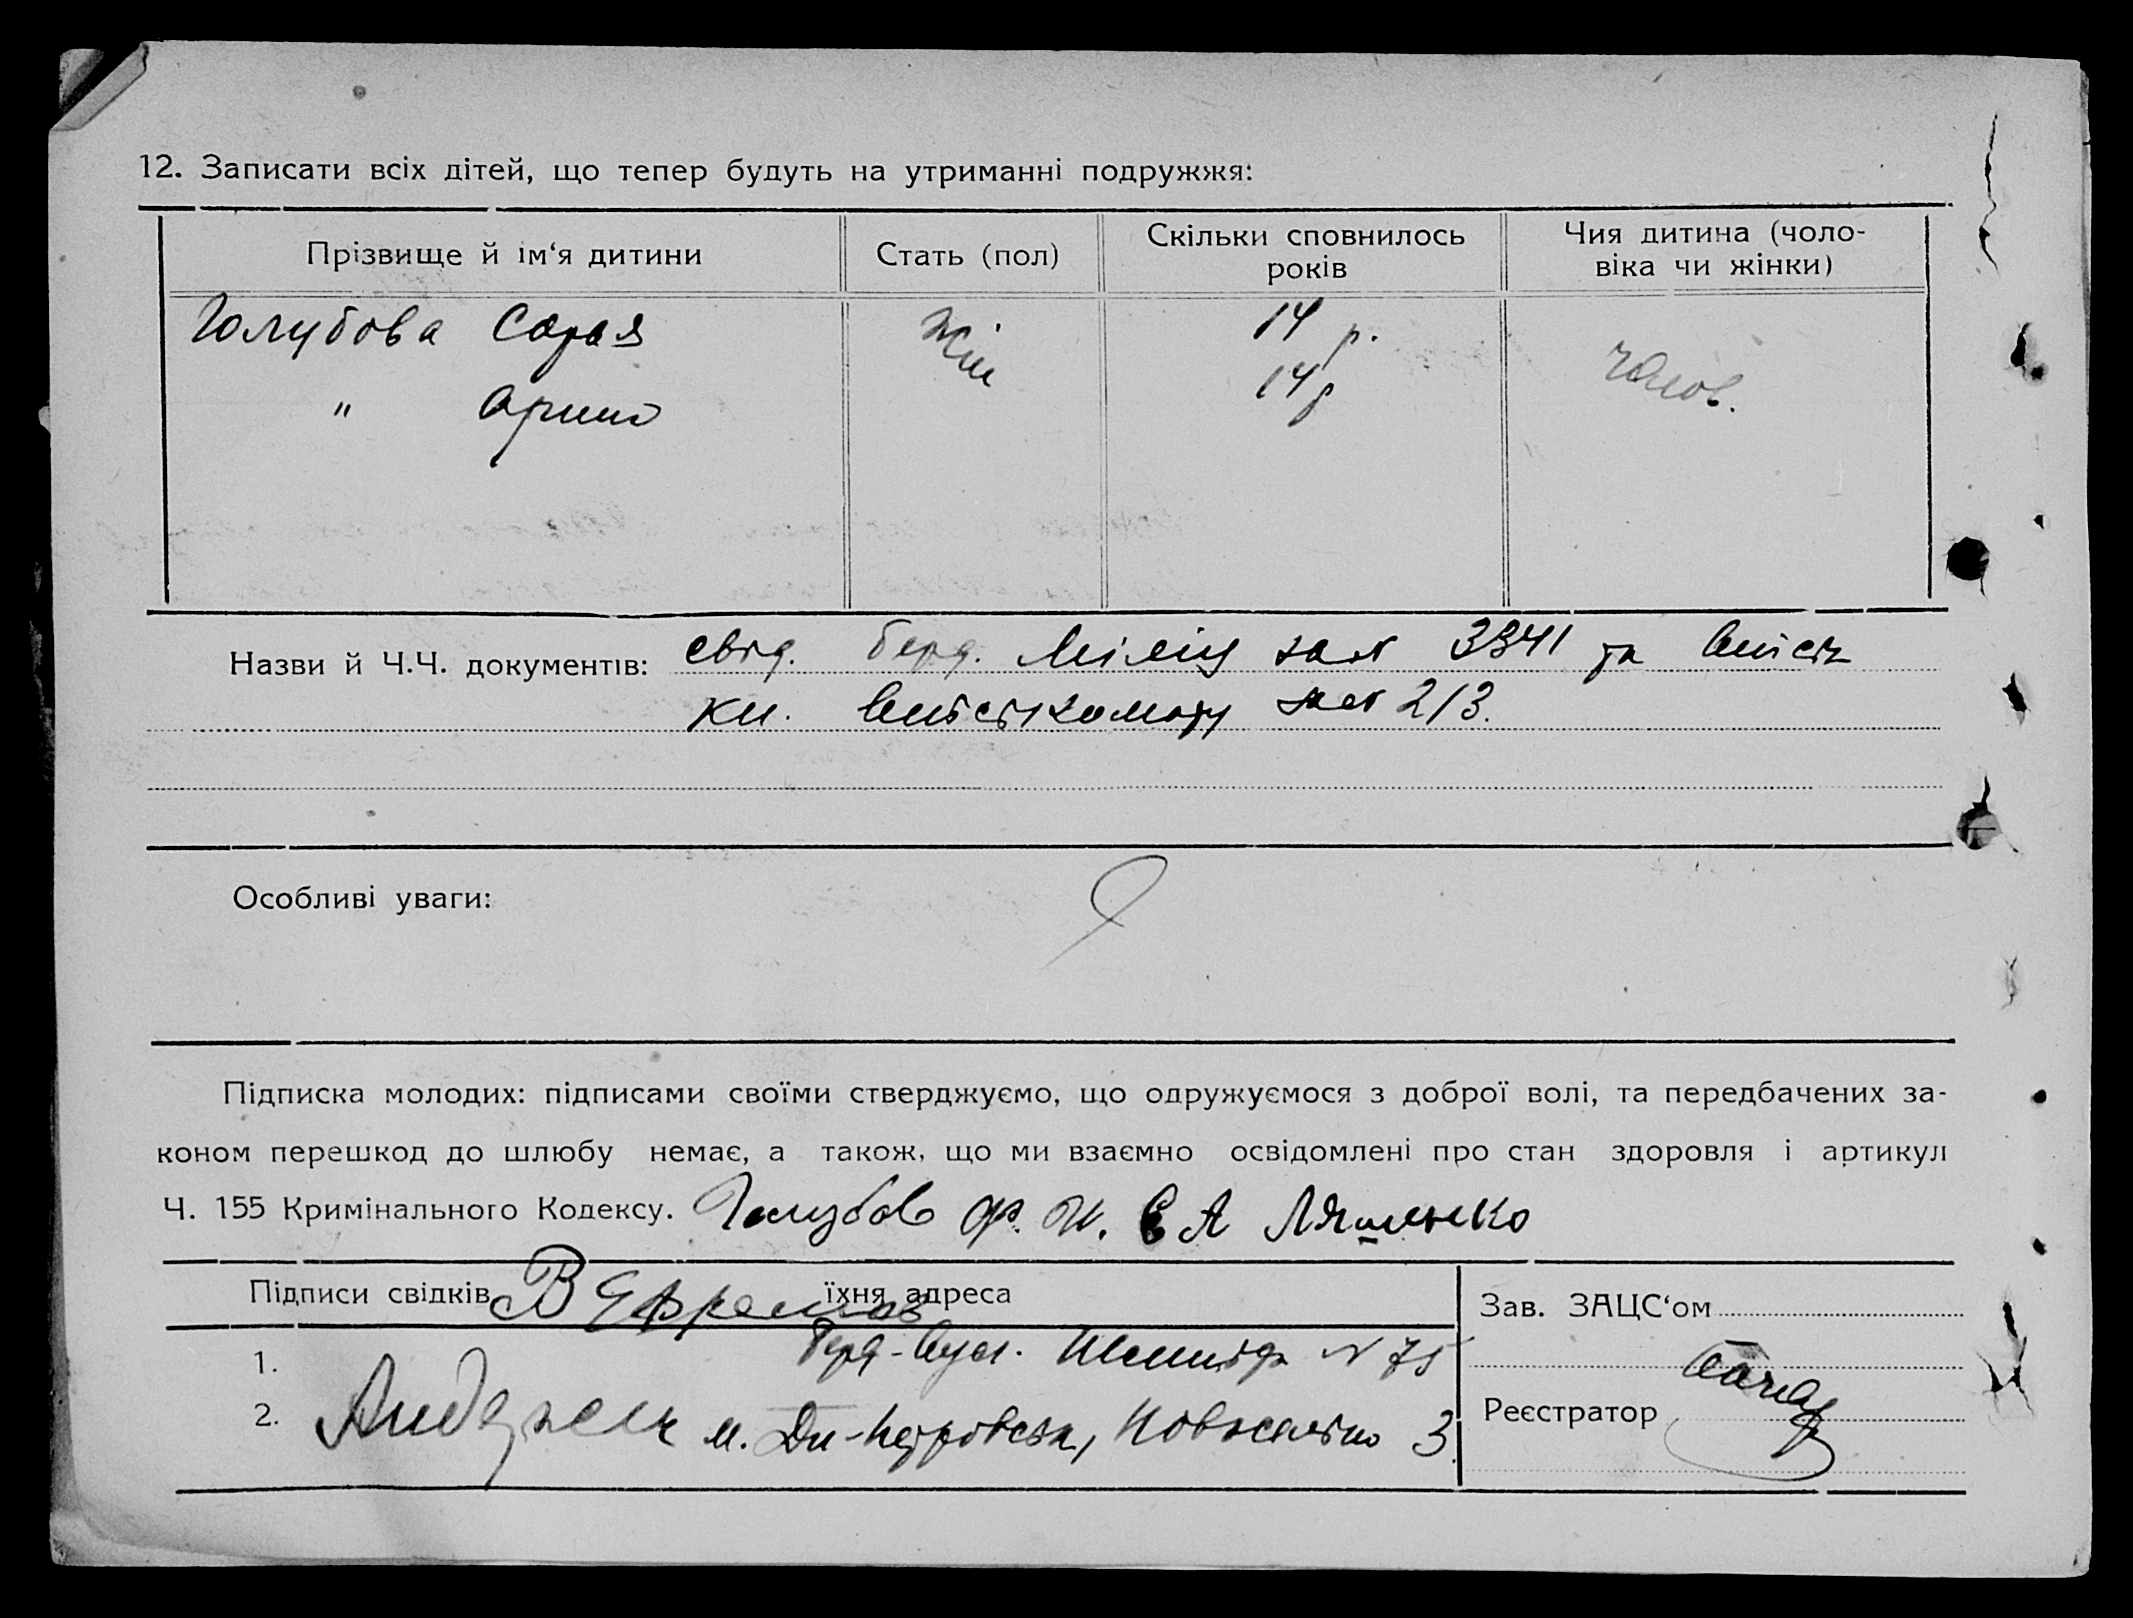 12. Записати всіх дітей, що тепер будуть на утриманні подружжя:
Прізвище й ім‘я дитини
Стать (пол)
Скільки сповнилось
років
Чия дитина (чоло-
віка чи жінки)
Голубова
жін
14 р.
чолов.
"
14 р
Назви й Ч.Ч. документів: свід. берд. Міліц за № 3341 та
кн. за № 213.
Особливі уваги:
Підписка молодих: підписами своїми стверджуємо, що одружуємося з доброї волі, та передбачених за-
коном перешкод до шлюбу немає, а також, що ми взаємно освідомлені про стан здоровля і артикул
Ч. 155 Кримінального Кодексу. Голубов Є А Ляшенко
Підписи свідків В Ефремов їхня адреса
Зав. ЗАЦС‘ом
1. Берд- вул. Шмидта N 75
2. м. Дн-петровськ, 3
Реєстратор